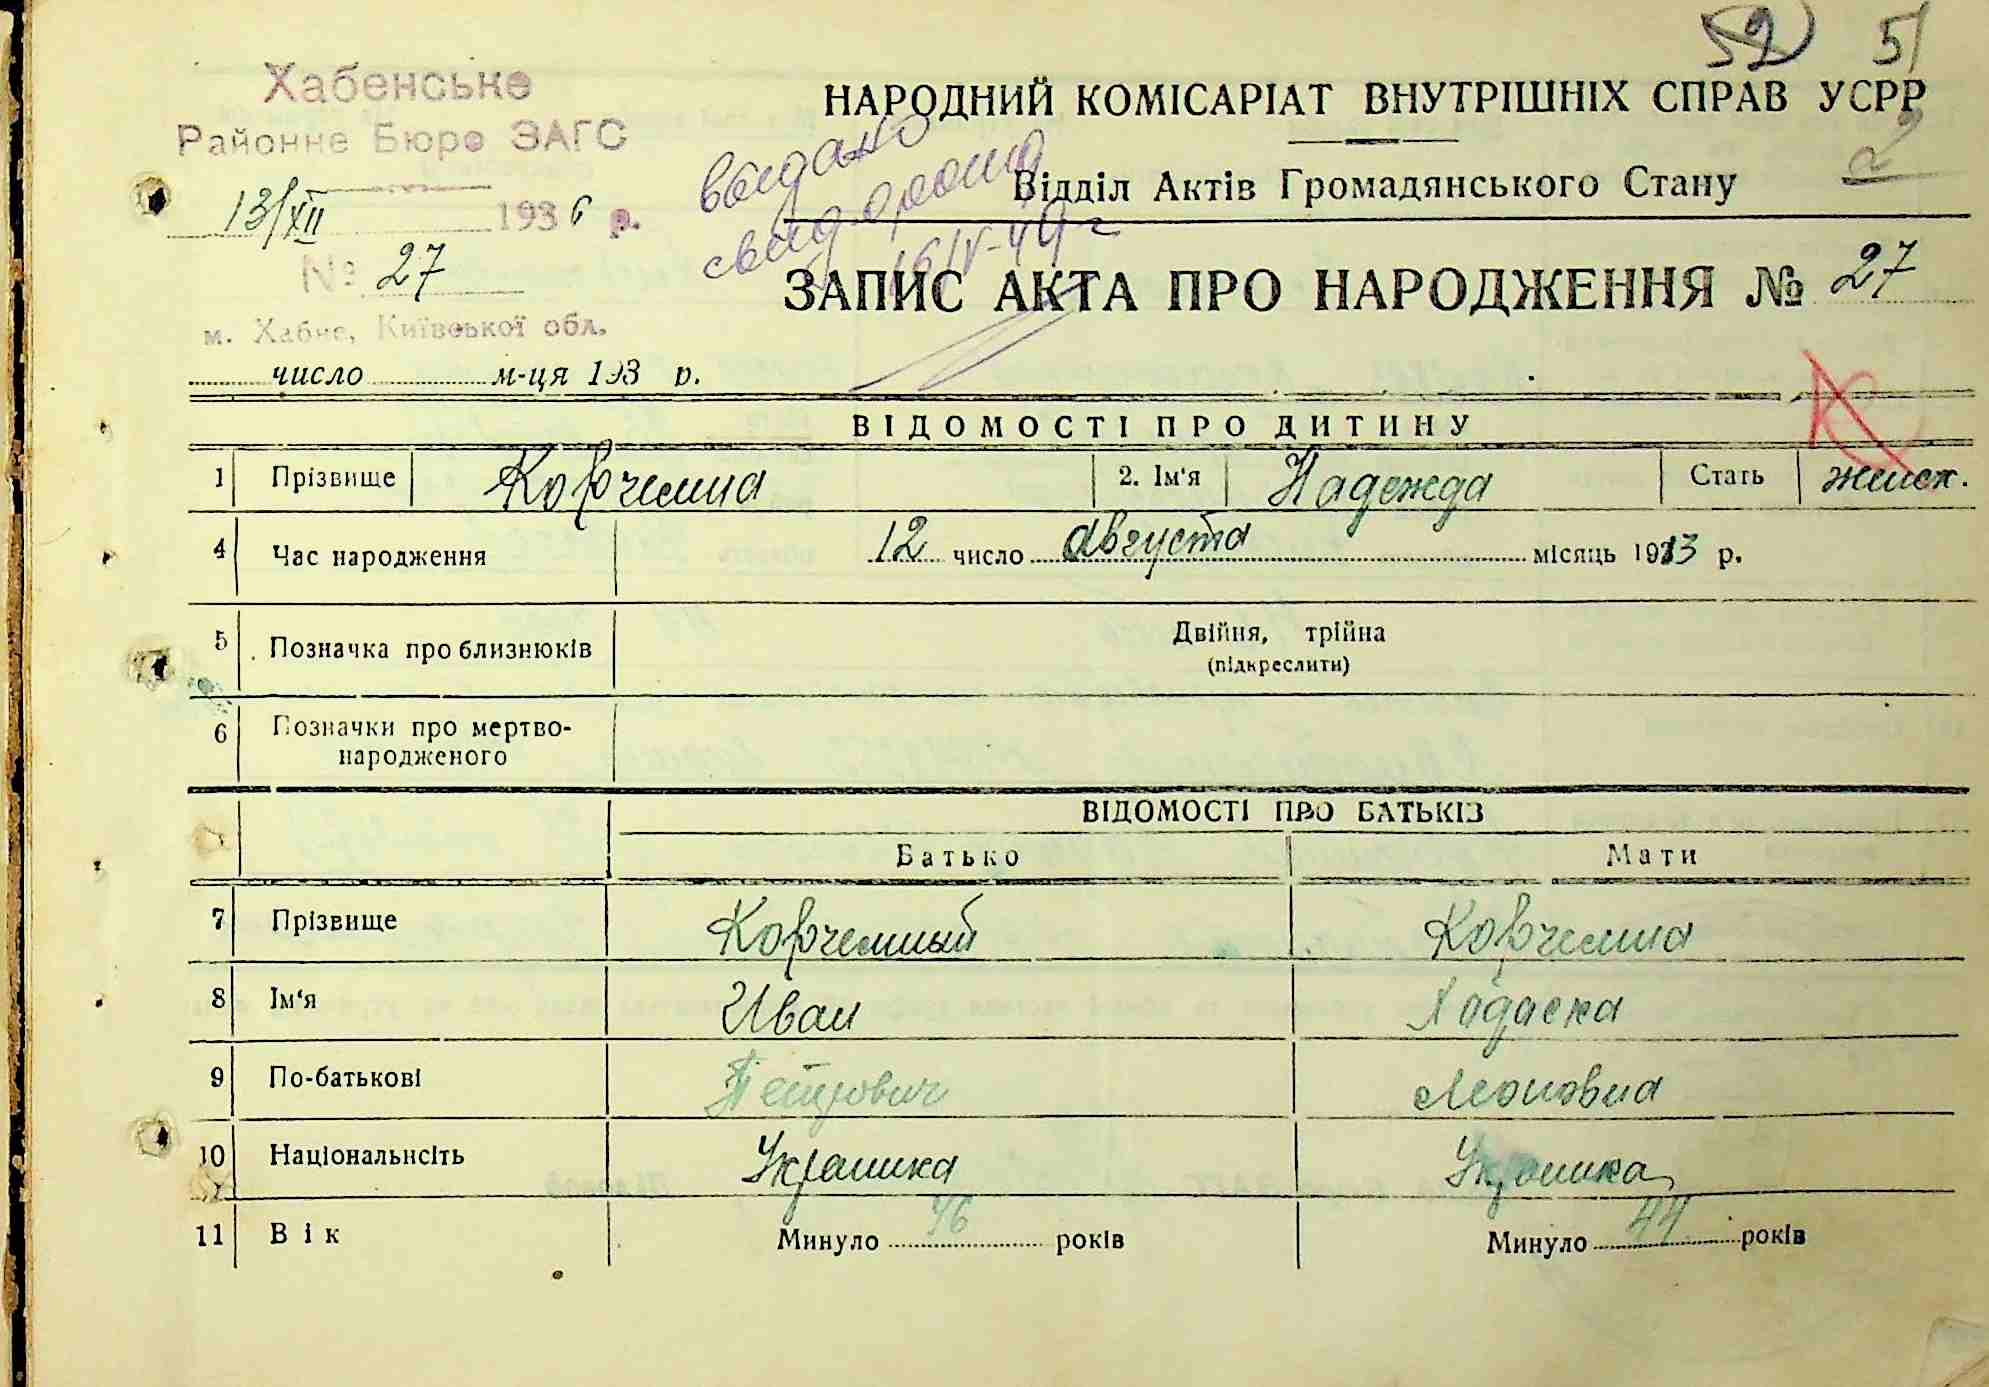 52 51
Хабенське
Районне Бюро ЗАГС
13/XII 1936 р.
№ 27
м. Хабне, Київської обл.
НАРОДНИЙ КОМІСАРІАТ ВНУТРІШНІХ СПРАВ УСРР
Відділ Актів Громадянського Стану
выдано
ЗАПИС АКТА ПРО НАРОДЖЕННЯ № 27
число м-ця 193 р.
ВІДОМОСТІ ПРО ДИТИНУ
1 Прізвище Корчемна 2. Ім'я Надежда Стать женск.
4 Час народження 12 число августа місяць 1913 р.
5 Позначка про близнюків Двійня, трійна
(підкреслити)
6 Позначки про мертво-
народженого
ВІДОМОСТІ ПРО БАТЬКІВ
Батько Мати
7 Прізвище Корчемный Корчемна
8 Ім'я Иван Ходаска
9 По-батькові Петрович Леоновна
10 Національнсіть Украинка Украинка
11 Вік Минуло 46 років Минуло 44 років